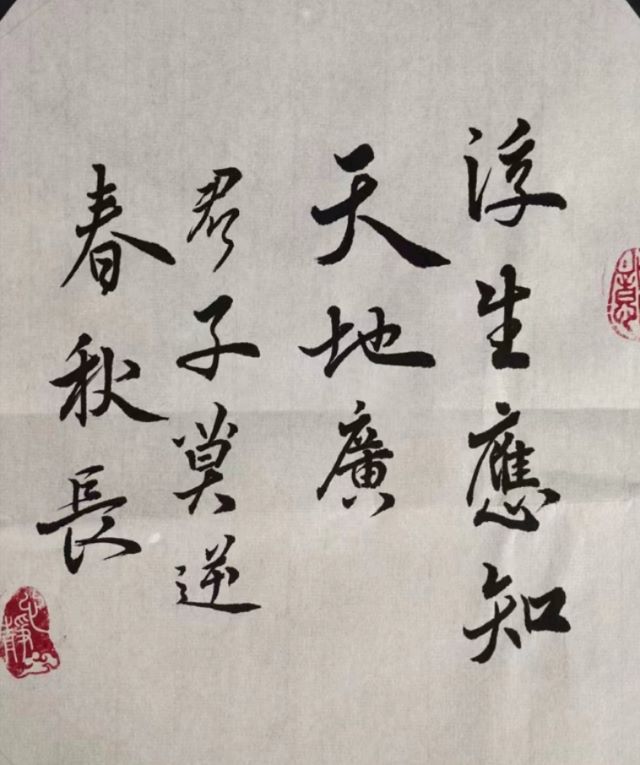 浮生應知
天地廣
君子莫逆
春秋長